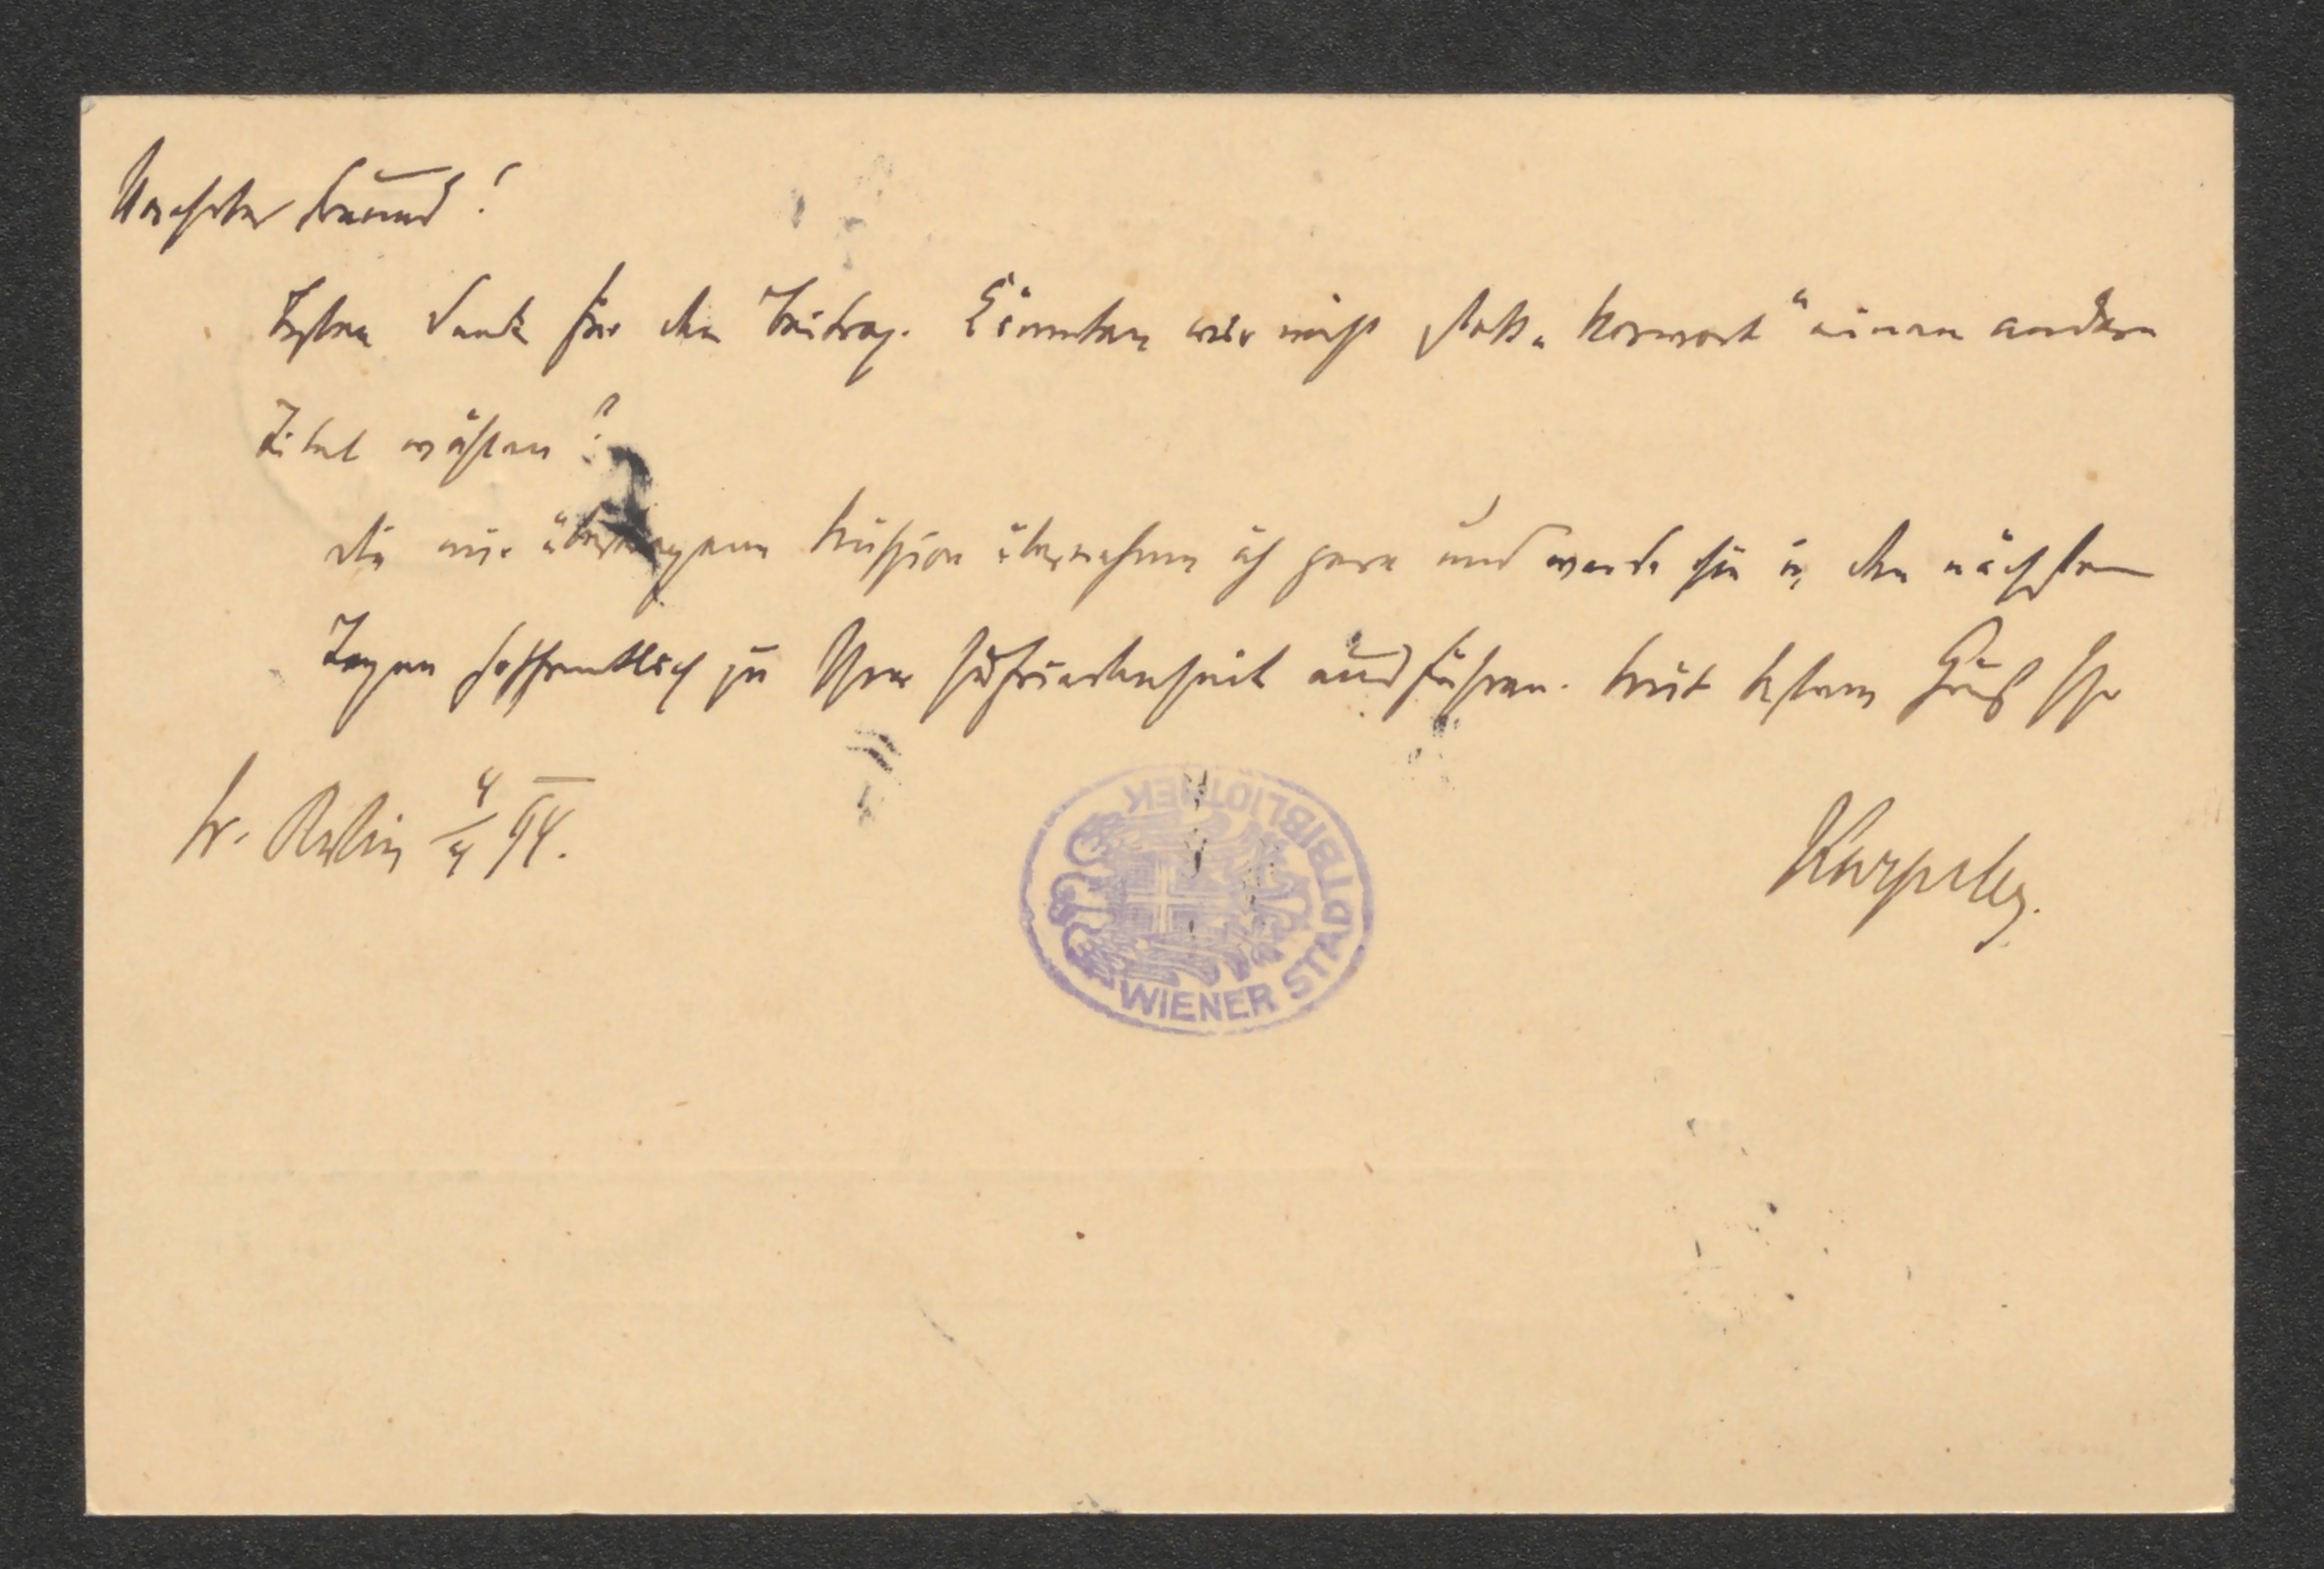 Verehrter Freund!
Besten Dank für den Beitrag. Könnten wir nicht statt „Vorwort“ einen andern
Titel wählen?
Die mir übertragene Mission übernehme ich gern und werde sie in den nächsten
Tagen hoffentlich zu Ihrer Zufriedenheit ausführen. Mit bestem Gruß Ihr
Berlin 4/4 94.
Karpeles.
WIENER STADTBIBLIOTHEK